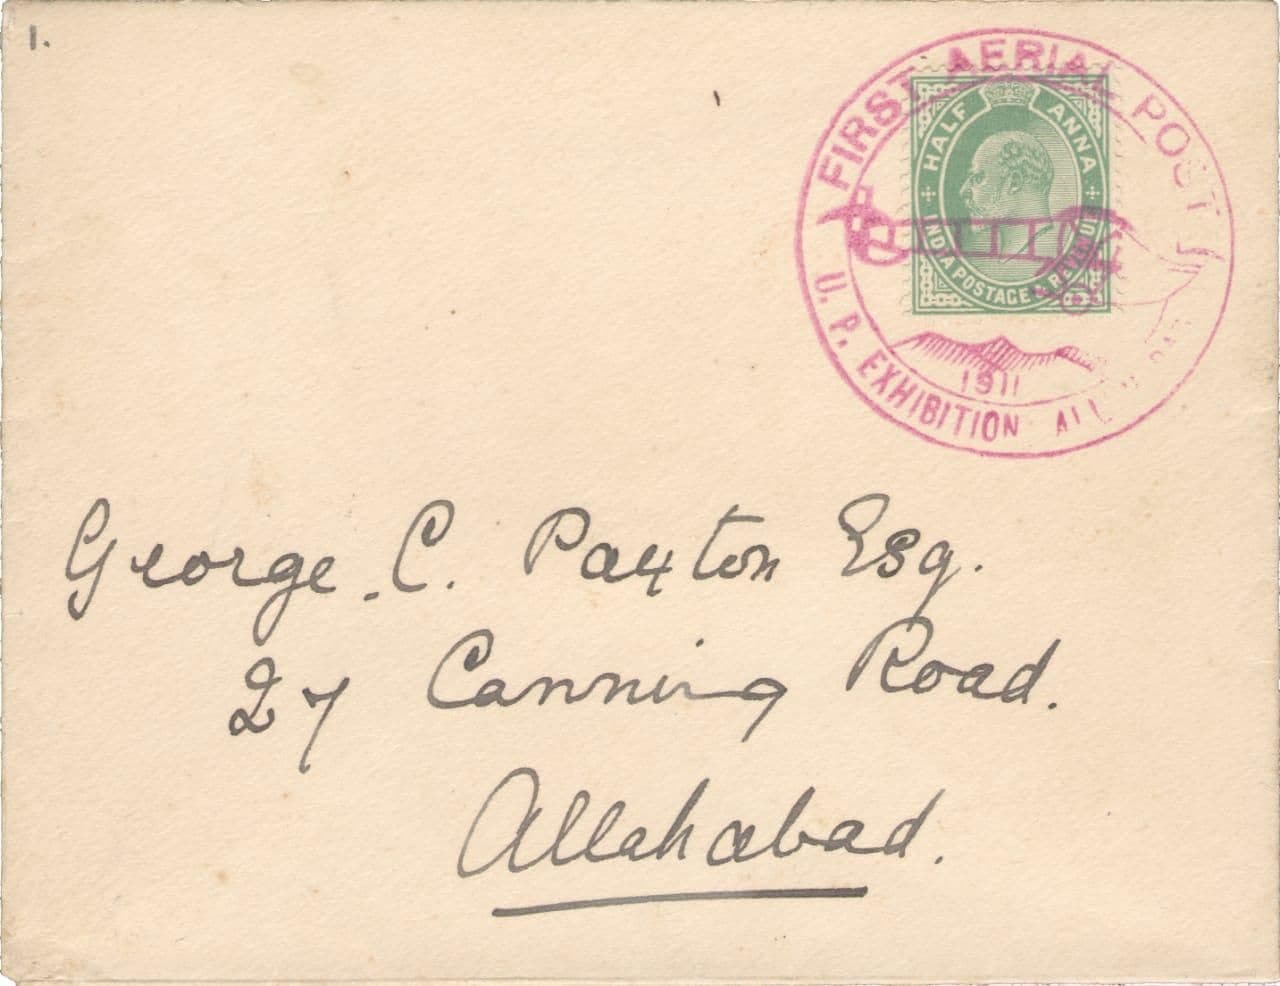 1.
FIRST AERIAL POST
HALF ANNA
INDIA POSTAGE & REVENUE
1911
U. P. EXHIBITION
George. C. Paxton Esq.
27 Canning Road.
Allahabad.